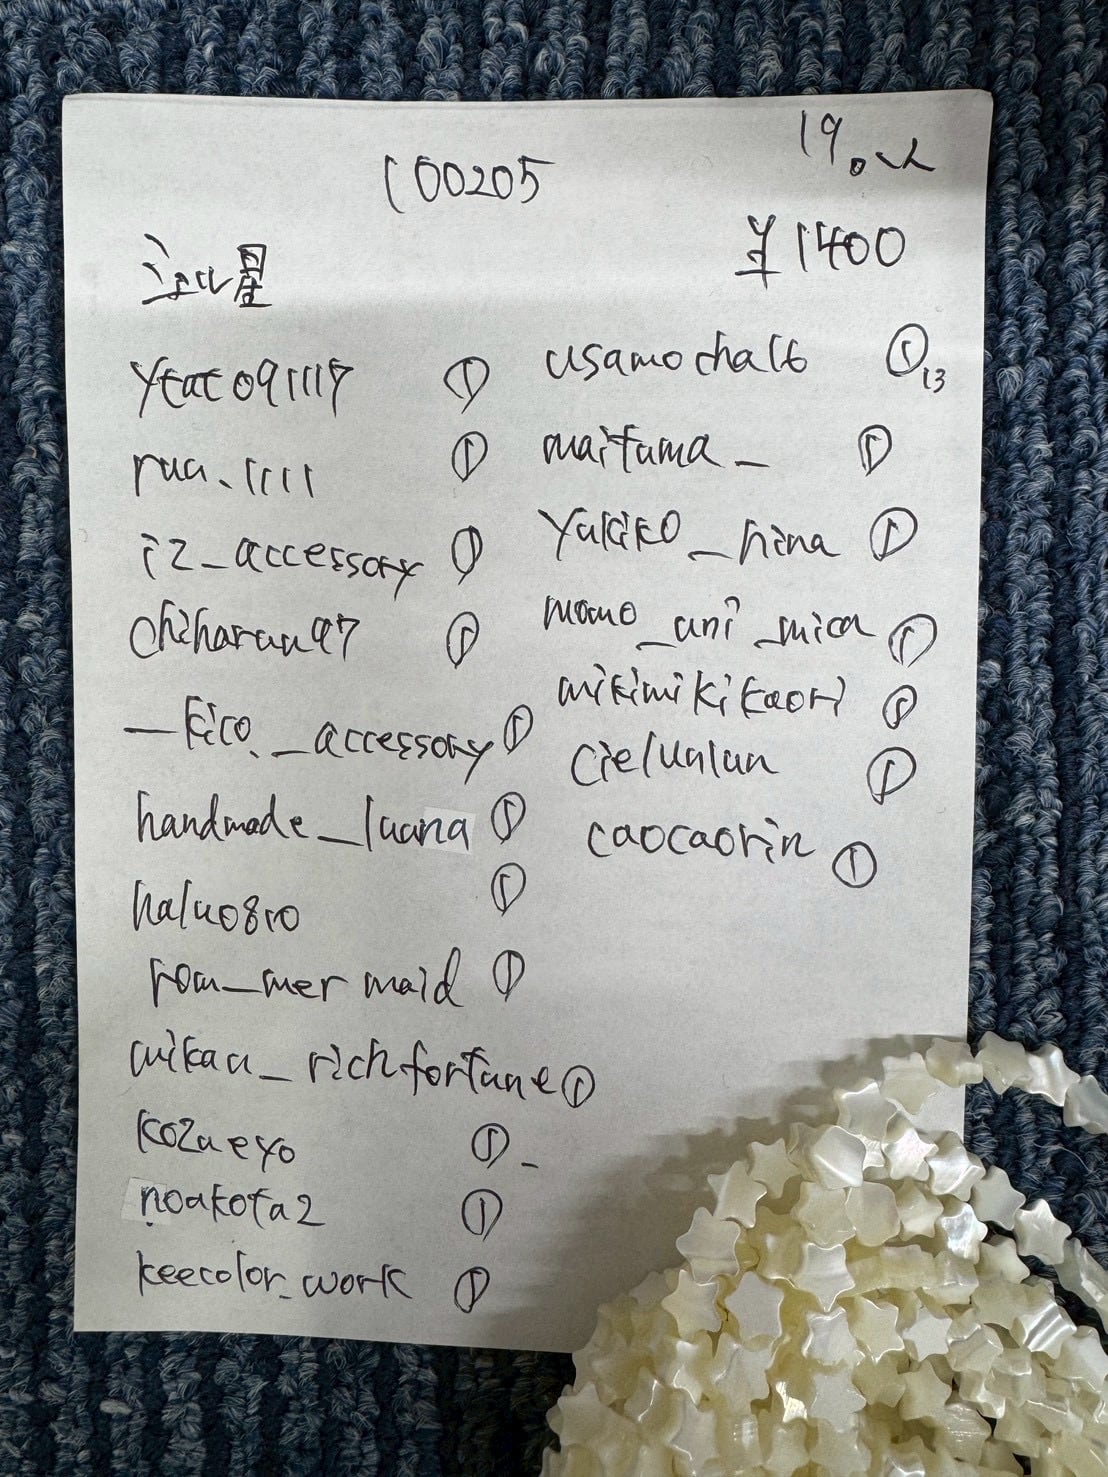 100205
¥1400
ytato91117 ①
rua.1111 ①
iz_accessory ①
chiharuu97 ①
_kico._accessory ①
handmade_luana ①
haluo810 ①
rou_mermaid ①
mikau_richfortune ①
kozueyo ①
noakota2 ①
keecolor_work ①
usamocha16 ① 13
maifuma_ ①
yukiko_hina ①
momo_uni_mica ①
mikimikikaori ①
cielunlun ①
caocaorin ①